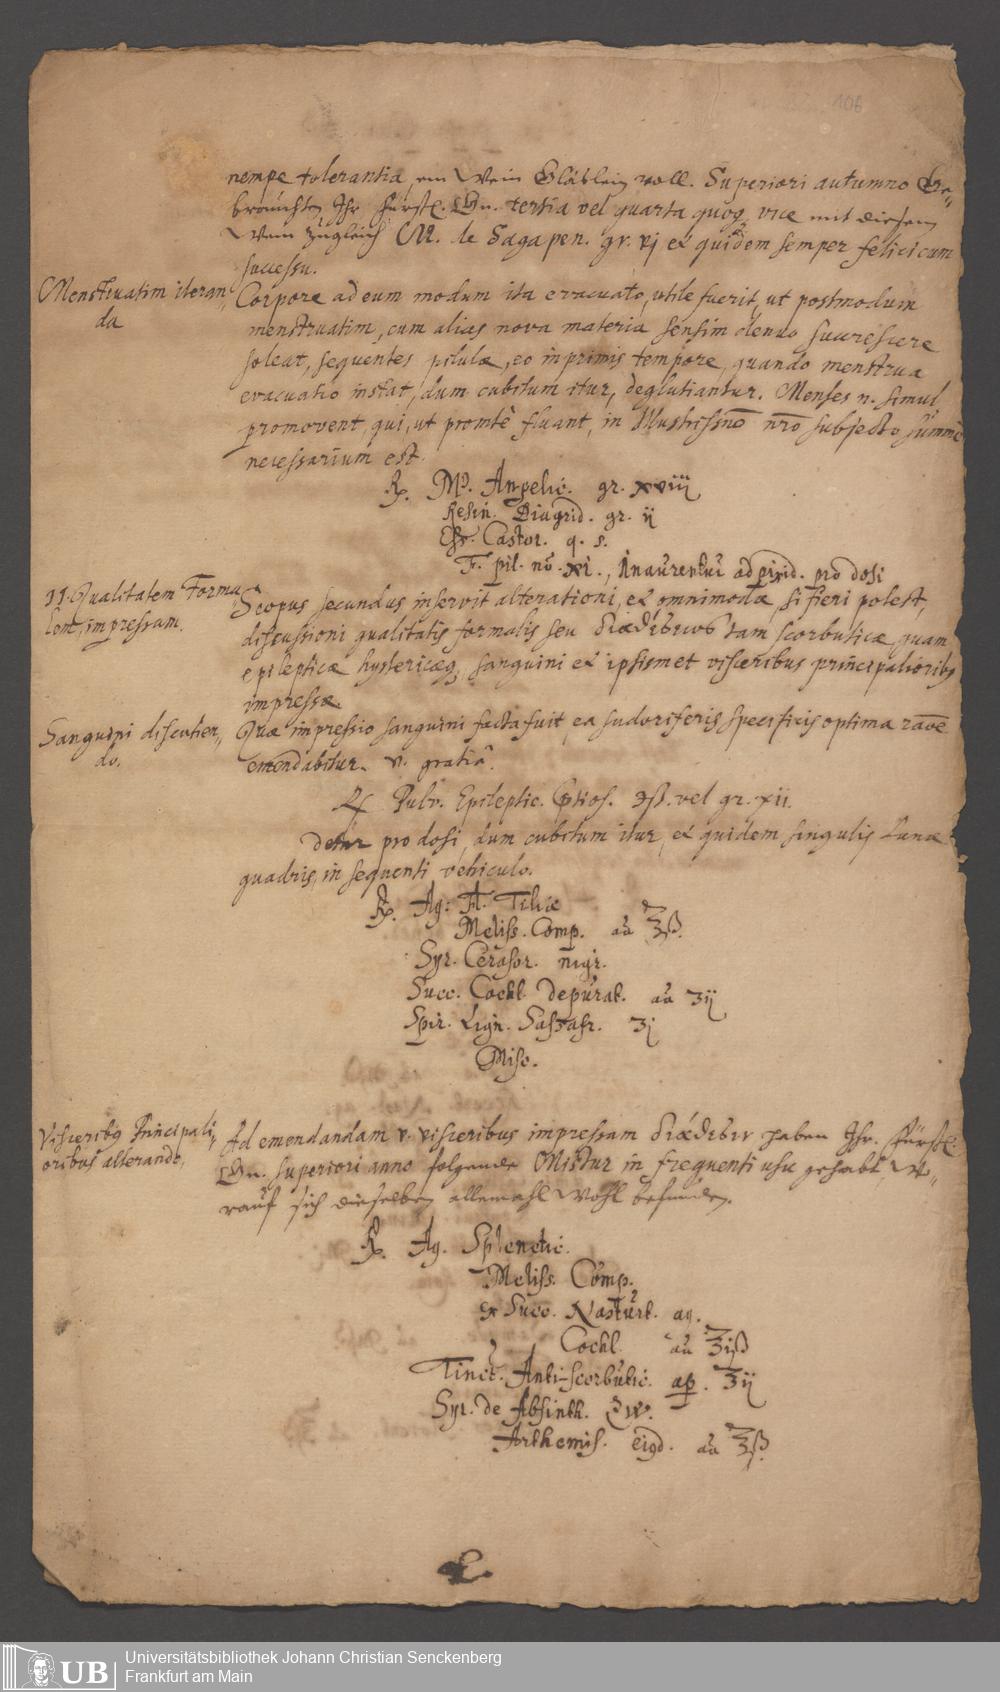 106
nempe tolerantia, ein Wein Gläßlein voll. Superiori autumno Ge-
brauchten Ihr Fürstl. Gn. tertia vel quarta quoq vice mit diesem
Wein zugleich M. de Sagapen. gr. vj et quidem semper felici cum
successu.
Menstruatim iteran-
da
Corpore ad eum modum ita evacuato, utile fuerit, ut postmodum
menstruatim, cum alias nova materia sensim denuo succrescere
soleat, sequentes pilulæ, eo inprimis tempore, quando menstrua
evacuatio instat, dum cubitum itur, deglutiantur. Menses n. simul
promovent, qui, ut promtè fluant, in Illustrissmo nro subjecto summè
necessarium est.
Rp. Angelic. gr. xviij
Resin. Diagrid. gr. ij
Ess. Castor. q. s.
F. pil. no. XI., Inaurentur ad pixid. pro dosi
II. Qualitatem Forma-
lem, impressam.
Scopus secundus inservit alterationi, et omnimodæ, si fieri potest,
discussioni qualitatis formalis seu διαθέσεως tam scorbuticæ quam
epilepticæ hystericæq, sanguini et ipsismet visceribus principalioribus
impressæ.
Sanguini discutien-
do.
Quæ impressio sanguini facta fuit, ea sudoriferis specificis optima raõe
emendabitur. v. gratiâ.
Rp Pulv. Epileptic. ℈ß. vel gr. xii.
Detur pro dosi, dum cubitum itur, et quidem singulis Lunæ
quadris, in sequenti vehiculo.
Rp. Aq: Fl. Tiliæ
Meliss. Comp. aā ℥ß.
Syr. Cerasor. nigr.
Succ. Cochl. depurat. aā ʒij
Spir. Lign. Sassafr. ʒj
Misc.
Visceribq Principali-
oribus alterando,
Ad emendandam v. visceribus impressam διάθεσιν haben Ihr. Fürstl.
Gn. superiori anno folgende Mixtur in frequenti usu gehabt, wo-
rauf sich dieselben allemahl wohl befunden.
Rp. Aq. Splenetic.
Meliss. Comp.
ex Succ. Nasturt. aq.
Cochl. aā ℥iß
Tinct. Anti-scorbutic. ap. ʒij
Syr. de Absinth.
Arthemis. aā ℥ß.
UB
Universitätsbibliothek Johann Christian Senckenberg
Frankfurt am Main